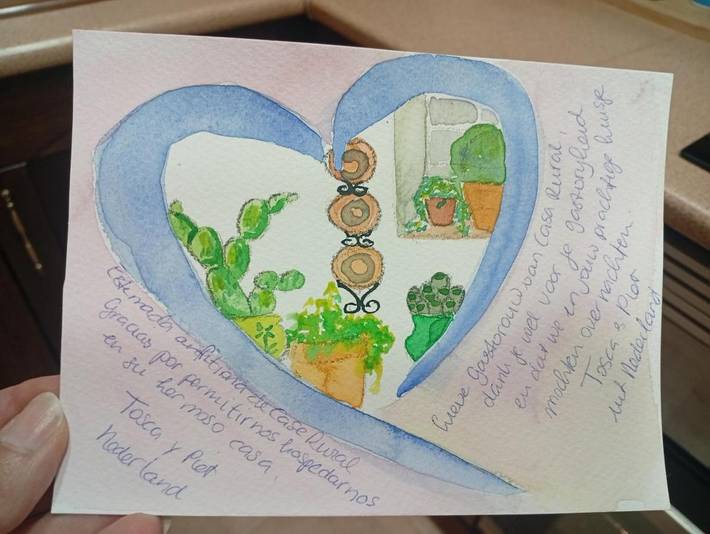 Estimada anfitriona de Casa Rural
Gracias por permitirnos hospedarnos
en su hermoso casa.
Tosca y Piet
Nederland
Lieve Gastvrouw van Casa Rural,
dank je wel voor je gastvrijheid
en dat we in jouw prachtige huisje
mochten overnachten.
Tosca & Piet
uit Nederland